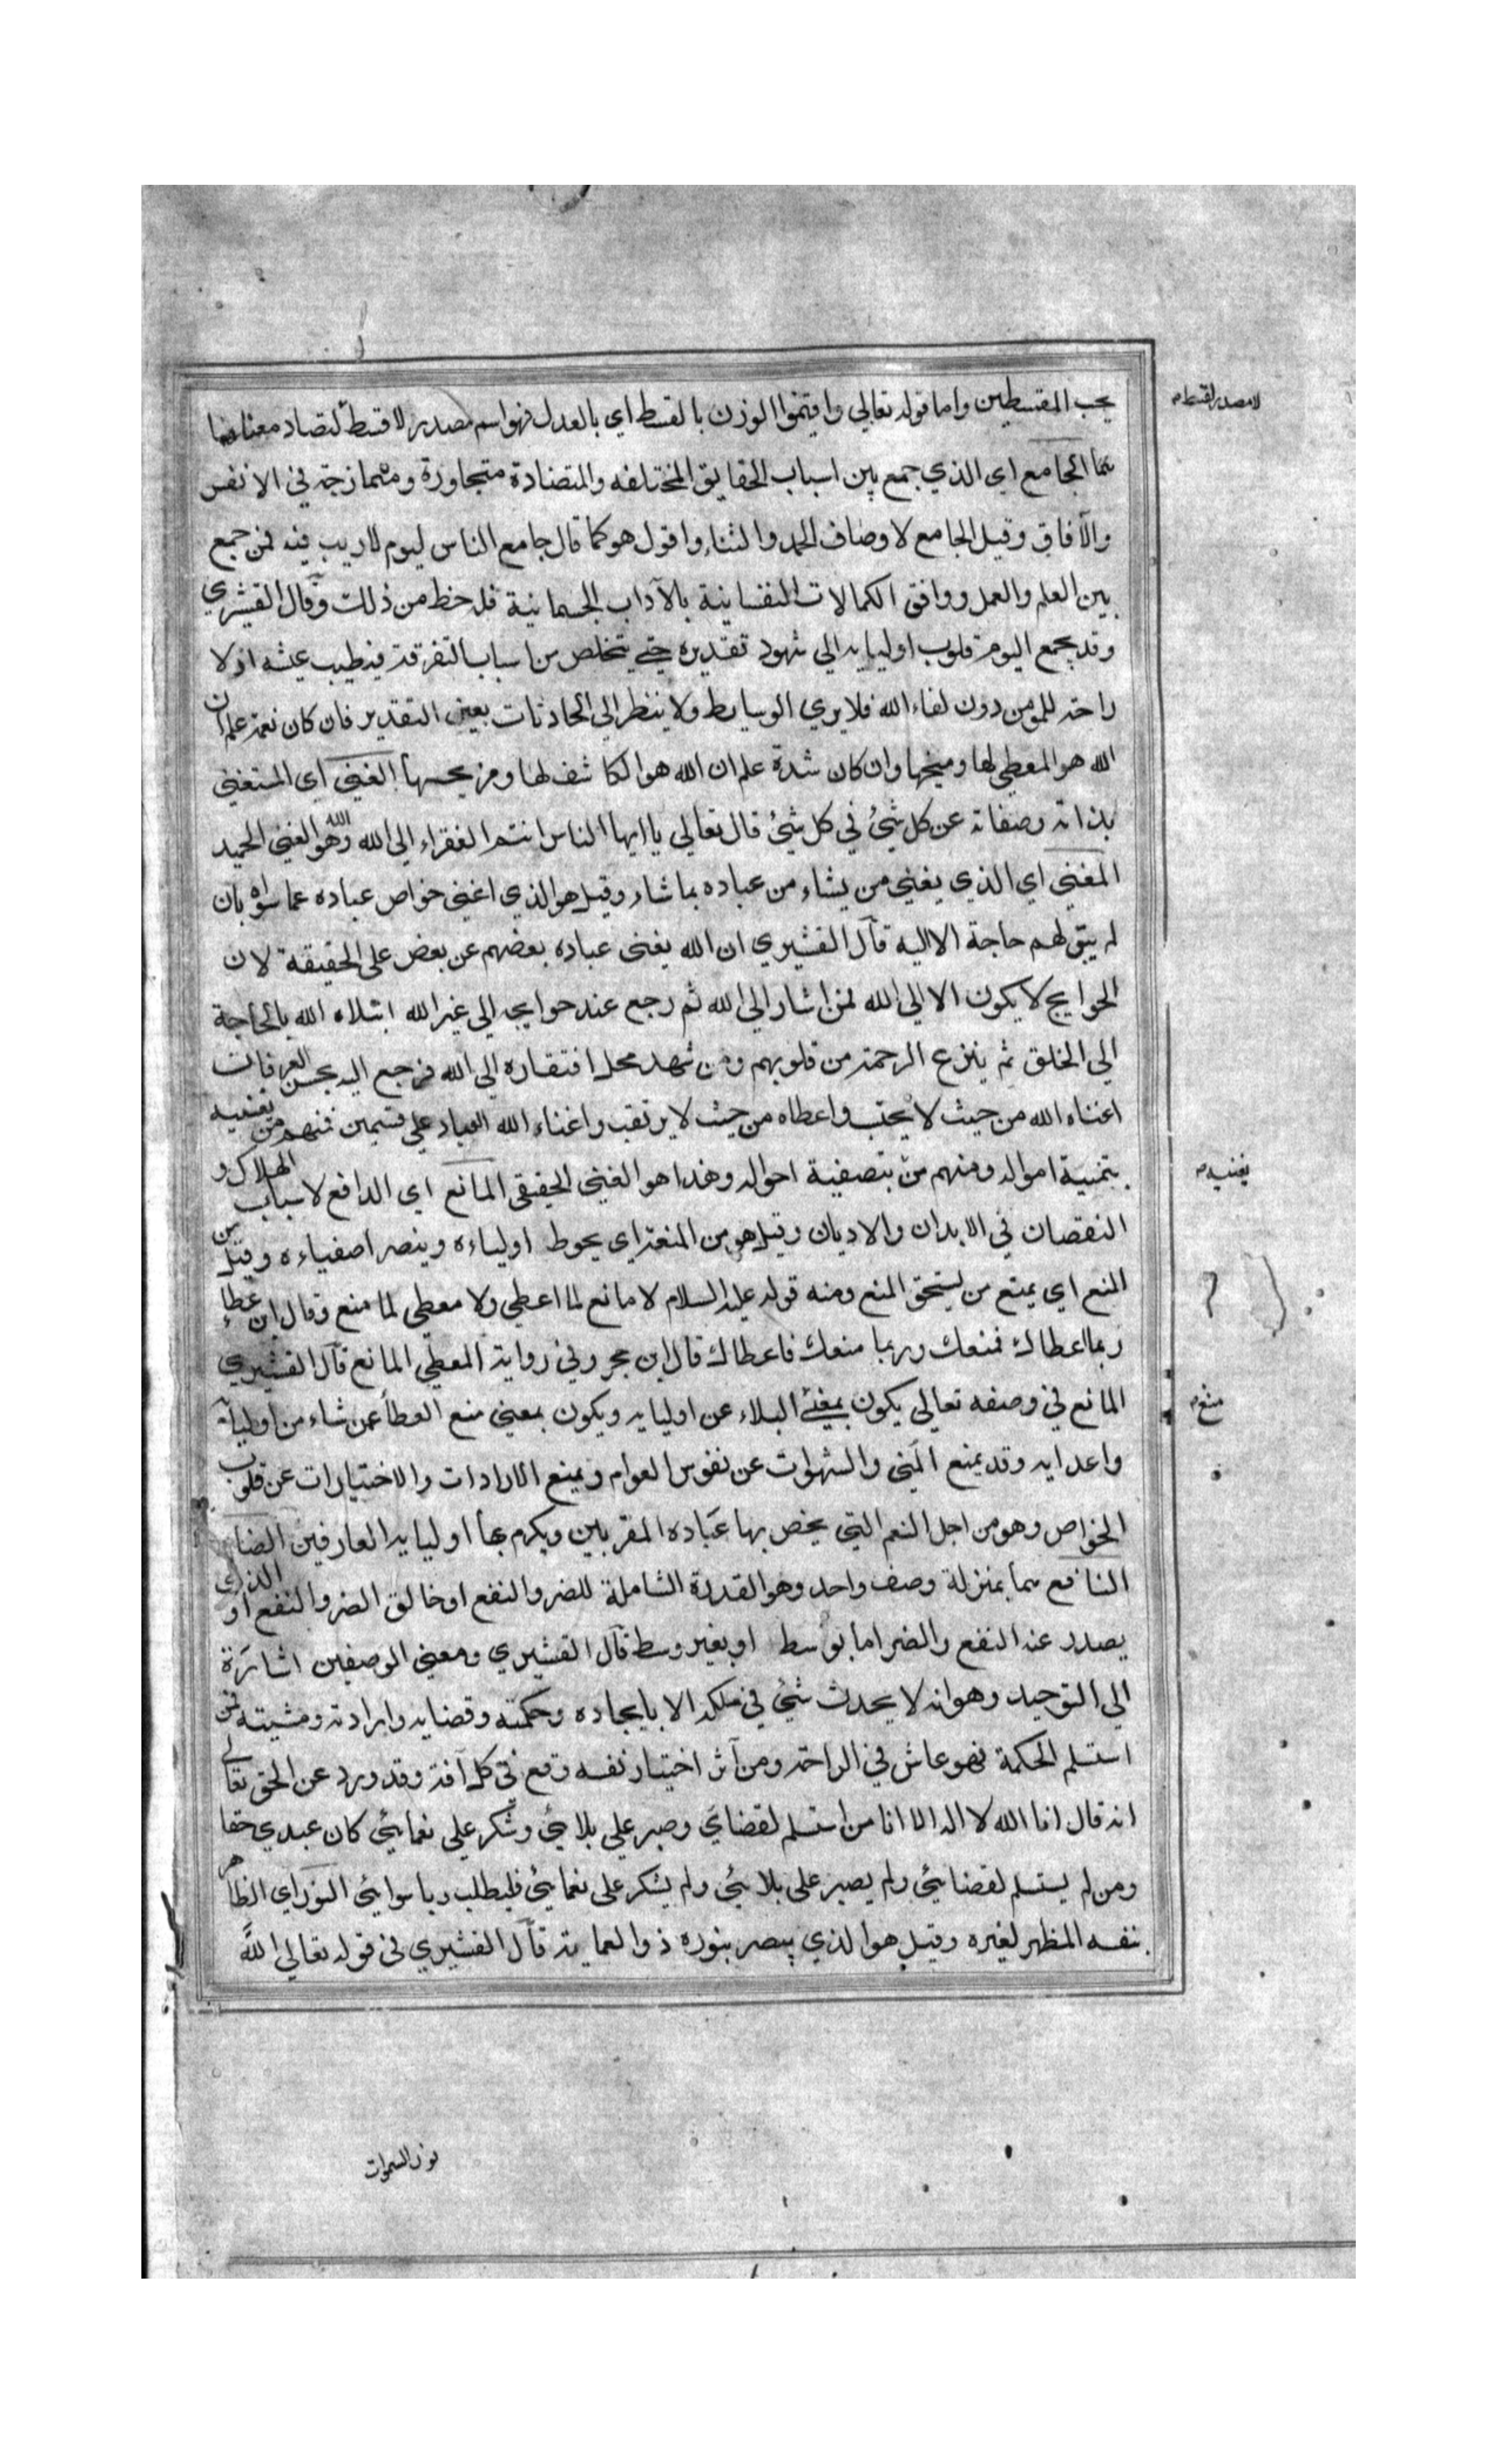 يحب المقسطين واما قوله تعالي واقيموا الوزن بالقسط اي بالعدل فهو اسم مصدر لاقسط لتضاد معناهما
لا مصدر لقسط م
الجامع اي الذي جمع بين اسباب الحقايق المختلفه والمتضادة متجاورة ومتمازجة في الانفس
والآفاق وقيل الجامع لاوصاف الحمد والثناء واقول هو كما قال جامع الناس ليوم لا ريب فيه فمن جمع
بين العلم والعمل ووافق الكمالات النفسانية بالآداب الجسمانية فله حظ من ذلك وقال القشيري
وقد يجمع اليوم قلوب اوليايه الي شهود تقديره حتي يتخلص من اسباب التفرقة فيطيب عيشه اذ لا
راحة للمومن دون لقاء الله فلا يري الوسايط ولا ينظر الي الحادثات بعين التقدير فان كان نعمة علم ان
الله هو المعطي لها ومنيحها وان كان شدة علم ان الله هو الكاشف لها الغني اي المستغني
بذاته وصفاته عن كل شئ في كل شئ قال تعالي يا ايها الناس انتم الفقراء الي الله والله هو الغني الحميد
المغني اي الذي يغني من يشاء من عباده بما شاء وقيل هو الذي اغني خواص عباده عما سواه بان
لم يبق لهم حاجة الا اليه قال القشيري ان الله يغني عباده بعضهم عن بعض علي الحقيقة لان
الحوايج لا يكون الا الي الله فمن اشار الي الله ثم رجع عند حوايجه الي غير الله ابتلاه الله بالحاجة
الي الخلق ثم ينزع الرحمة من قلوبهم ومن شهد محل افتقاره الي الله فرجع اليه بحسن العرفان
اغناه الله من حيث لا يحتسب واعطاه من حيث لا يرتقب واغناء الله العباد علي قسمين فمنهم من يغنيه
بتنمية امواله ومنهم من بتصفية احواله وهذا هو الغني الحقيقي المانع اي الدافع لاسباب الهلاك و
يغنيه م
النقصان في الابدان والاديان وقيل هو من المنعة اي يحوط اولياءه وينصر اصفياءه وقيل من
المنع اي يمنع من يستحق المنع ومنه قوله عليه السلام لا مانع لما اعطي ولا معطي لما منع وقال ابن عطاء
ربما اعطاك فمنعك وربما منعك فاعطاك قال ابن حجر وفي رواية المعطي المانع قال القشيري
المانع في وصفه تعالي يكون بمعني البلاء عن اوليايه ويكون بمعني منع العطاء عمن شاء من اوليائه
منع م
واعدايه وقد يمنع المني والشهوات عن نفوس العوام ويمنع الارادات والاختيارات عن قلوب
الخواص وهو من اجل النعم التي يخص بها عباده المقربين ويكرم بها اوليايه العارفين الضار
النافع هما بمنزلة وصف واحد وهو القدرة الشاملة للضر والنفع او خالق الضر والنفع او الذي
يصدر عنه النفع والضر اما بوسط او بغير وسط قال القشيري ومعني الوصفين اشارة
الي التوحيد وهو انه لا يحدث شئ في ملكه الا بايجاده وحكمته وقضايه وارادته ومشيته فمن
استسلم الحكمة فهو عاش في الراحة ومن آثر اختيار نفسه وقع في كل آفة وقد ورد عن الحق تعالي
انه قال انا الله لا اله الا انا من استسلم لقضائي وصبر علي بلائي وشكر علي نعمائي كان عبدي حقا
ومن لم يستسلم لقضائي ولم يصبر علي بلائي ولم يشكر علي نعمائي فليطلب ربا سوائي النور اي الظاهر
بنفسه المظهر لغيره وقيل هو الذي يبصر بنوره ذو العماية قال القشيري في قوله تعالي الله
نور السموات